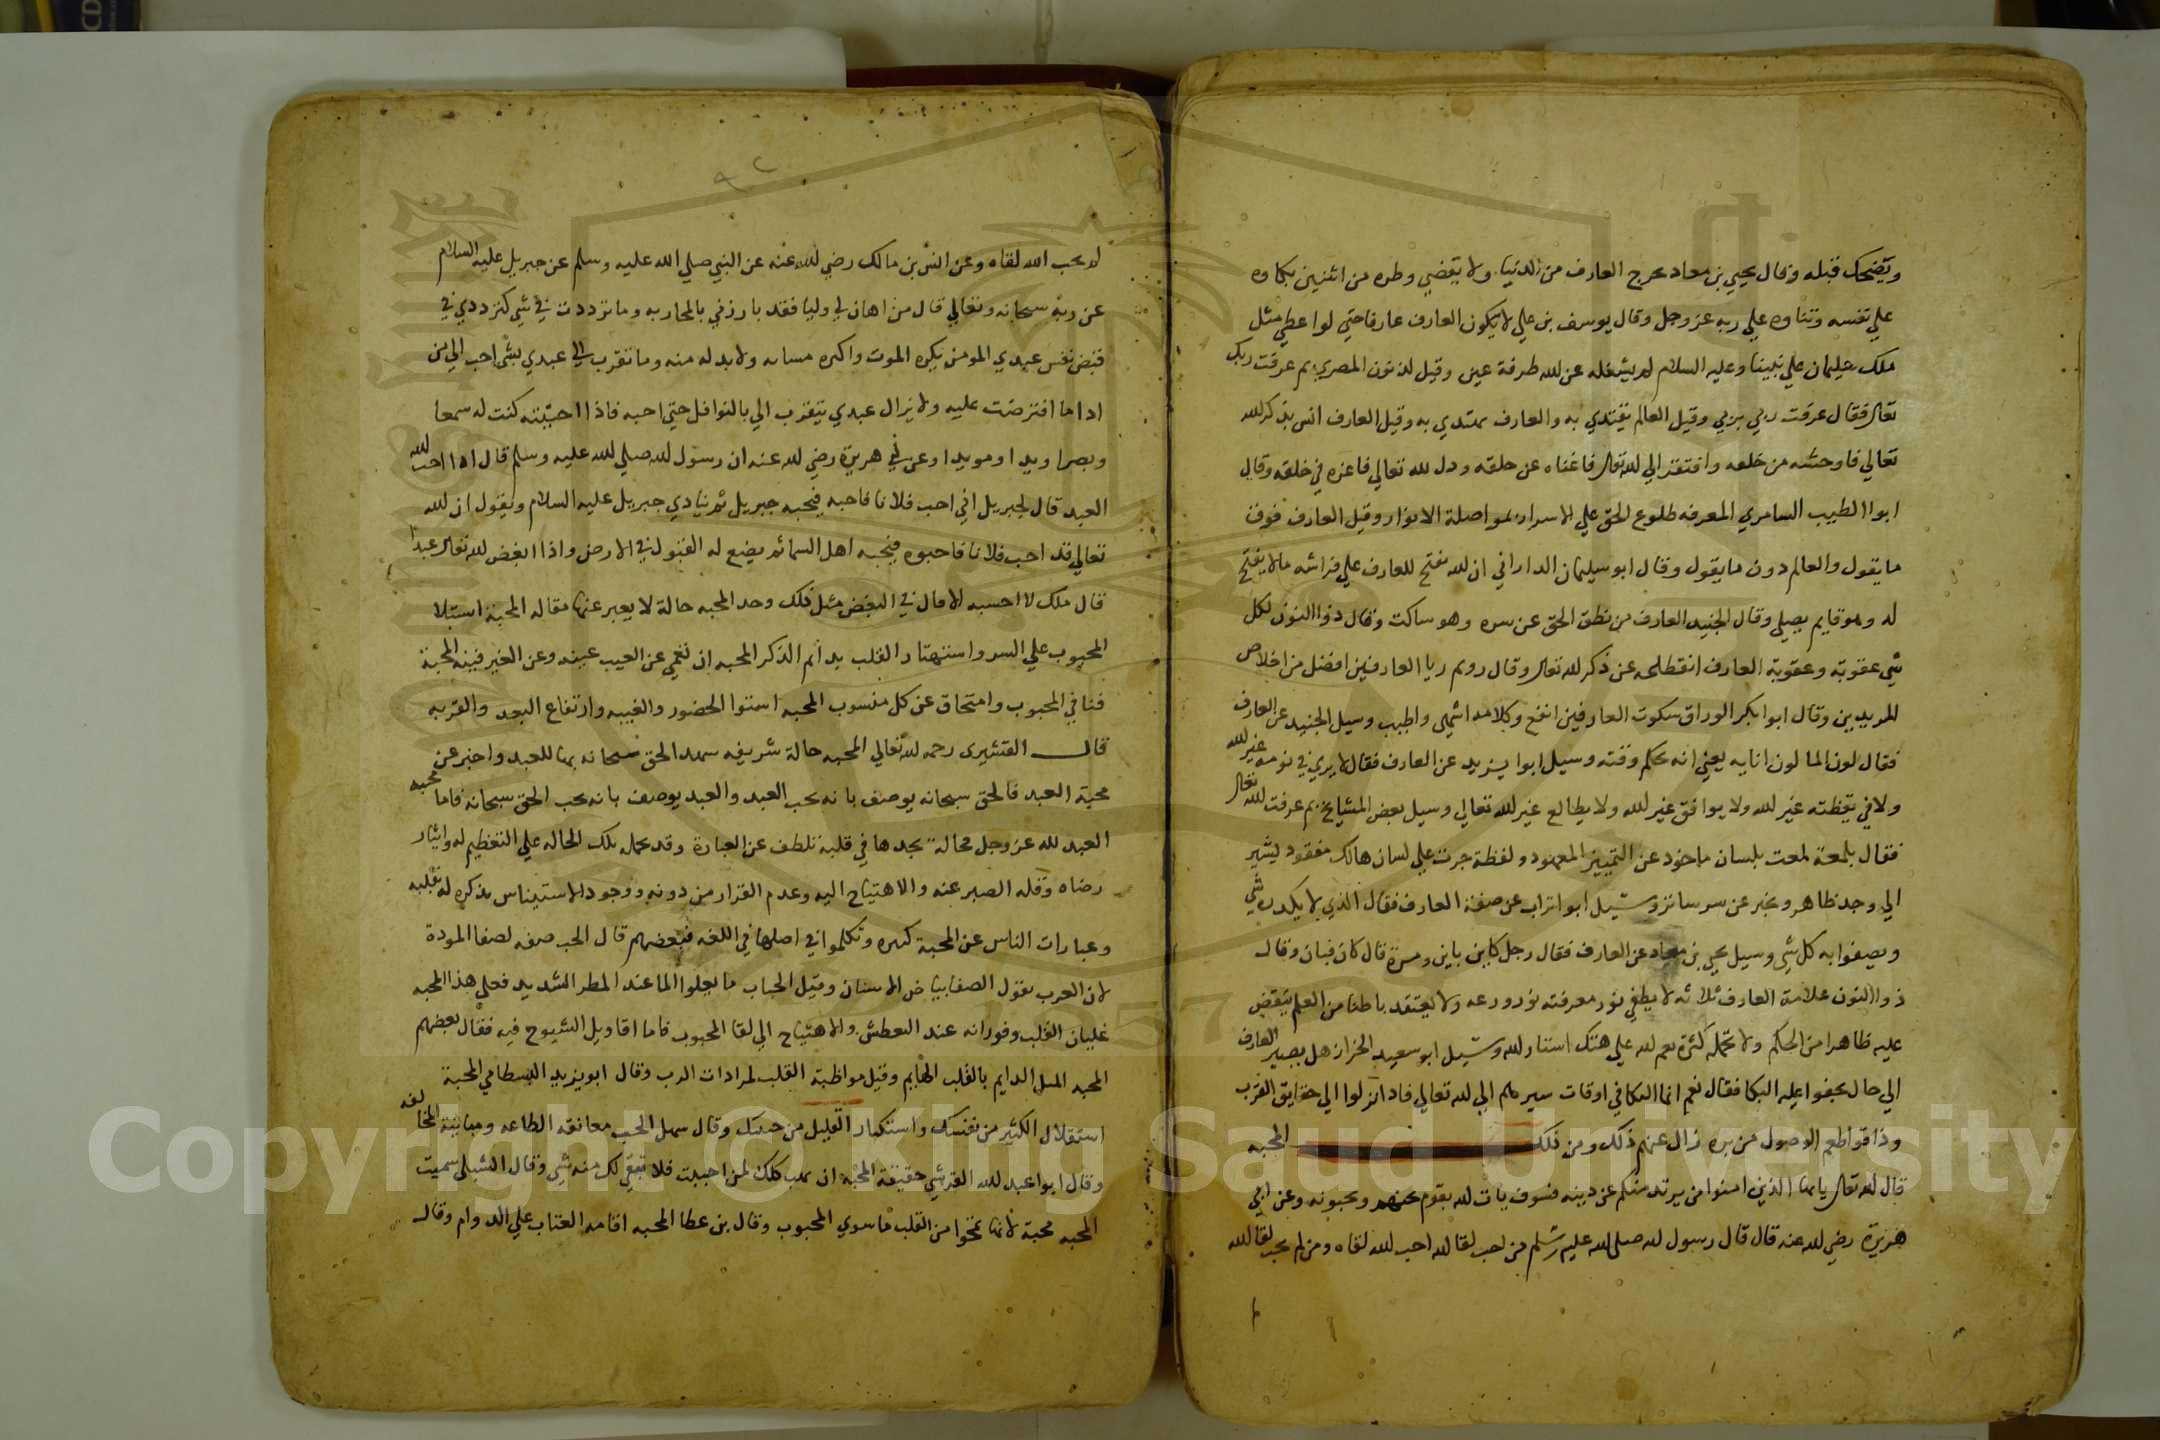 ويضحك قبله وقال يحيي بن معاد يخرج العارف من الدنيا ولا يقضي وطره من اثنين بكاوه
علي نفسه وثناوه علي ربه عز وجل وقال يوسف بن علي لا يكون العارف عارفا حتي لو اعطي مثل
ملك سليمان علي نبينا وعليه السلام لم يشغله عن الله طرفة عين وقيل لذنون المصري بم عرفت ربك
تعالى فقال عرفت ربي بربي وقيل العالم يقتدي به والعارف يهتدي به وقيل العارف انس بذكر الله
تعالي فاوحشه من خلقه وافتقر الي الله تعالى فاغناه عن خلقه ودل لله تعالي فاعزه في خلقه وقال
ابوا الطيب السامري المعرفه طلوع الحق علي الاسرار بمواصلة الانوار وقيل العارف فوق
ما يقول والعالم دون ما يقول وقال ابو سليمان الداراني ان الله يفتح للعارف علي فراشه ما لا يفتح
له وهو قايم يصلي وقال الجنيد العارف من نطق الحق عن سره وهو ساكت وقال ذوا النون لكل
شي عقوبة وعقوبة العارف انقطاعه عن ذكر الله تعالى وقال رويم ريا العارفين افضل من اخلاص
المريدين وقال ابوا بكر الوراق سكوت العارفين انفع وكلامه اشهى واطيب وسيل الجنيد عن العارف
فقال لون الما لون انايه يعني انه بحكم وقته وسيل ابوا يزيد عن العارف فقال لا يري في نومه غير الله
ولا في يقظته غير الله ولا يوافق غير الله ولا يطالع غير الله تعالي وسيل بعض المشايخ بم عرفت الله تعالى
فقال بلمعة لمعت بلسان ماخوذ عن التمييز المعهود ولفظة جرت علي لسان هالك مفقود ليشير
الي وجد ظاهر ويخبر عن سر ساتر وسيل ابوا تراب عن صفة العارف فقال الذي لا يكدره شي
ويصفوا به كل شي وسيل يحي بن معاد عن العارف فقال رجل كاين باين ومرة قال كان فبان وقال
ذوا النون علامة العارف ثلاثه لا يطفي نور معرفته نور ورعه ولا يعتقد باطنا من العلم ينقض
عليه ظاهرا من الحكم ولا تحمله كثرة نعم الله علي هتك استار الله وسيل ابو سعيد الخراز هل يصير العارف
الي حال يجفوا عليه البكا فقال نعم انما البكا في اوقات سيرهم الي الله تعالي فاذا نزلوا الي حقايق القرب
وذاقوا طعم الوصول من بره زال عنهم ذلك ومن ذلك المحبه
قال الله تعالى يا ايها الذين امنوا من يرتد منكم عن دينه فسوف يات الله بقوم يحبهم ويحبونه وعن ابي
هريرة رضي الله عنه قال قال رسول الله صلى الله عليه وسلم من احب لقا الله احب الله لقاه ومن لم يحب لقا الله
لم يحب الله لقاه وعن انس بن مالك رضي الله عنه عن النبي صلي الله عليه وسلم عن جبريل عليه السلام
عن ربه سبحانه وتعالي قال من اهان لي وليا فقد بارزني بالمحاربه وما ترددت في شي كترددي في
قبض نفس عبدي المومن يكره الموت واكره مساه ولا بد له منه وما تقرب الي عبدي بشي احب الي من
ادا ما افترضت عليه ولا يزال عبدي يتقرب الي بالنوافل حتي احبه فاذا احببته كنت له سمعا
وبصرا ويدا ومويدا وعن ابي هريرة رضي الله عنه ان رسول الله صلي الله عليه وسلم قال اذا احب الله
العبد قال لجبريل اني احب فلانا فاحبه فيحبه جبريل ثم ينادي جبريل عليه السلام ويقول ان الله
تعالي قد احب فلانا فاحبوه فيحبه اهل السما ثم يضع له القبول في الارض واذا ابغض الله تعالى عبدا
قال ملك لا احسبه الا قال في البغض مثل ذلك وحد المحبه حالة لا يعبر عنها مقاله المحبة استيلا
المحبوب علي السر واستهتار القلب بدايم الذكر المحبه ان تعمي عن العيب عينه وعن الغير فيه المحبة
فنا في المحبوب وامتحاق عن كل منسوب المحبه استوا الحضور والغيبه وارتفاع البعد والقربه
قال القشيري رحمه الله تعالي المحبه حالة شريفه شهد الحق سبحانه بها للعبد واخبر عن
محبة العبد فالحق سبحانه يوصف بانه يحب العبد والعبد يوصف بانه يحب الحق سبحانه فاما محبة
العبد لله عز وجل فحالة يجدها في قلبه تلطف عن العبارة وقد تحمله تلك الحاله علي التعظيم له وايثار
رضاه وقله الصبر عنه والاهتياج اليه وعدم القرار من دونه ووجود الاستيناس بذكره له بقلبه
وعبارات الناس عن المحبة كثيره وتكلموا في اصلها في اللغه فبعضهم قال الحب صفه لصفا المودة
لان العرب تقول لصفا بياض الاسنان وقيل الحباب ما يعلوا الما عند المطر الشديد فعلي هذا المحبه
غليان القلب وفورانه عند العطش والاهتياج الي لقا المحبوب فاما اقاويل الشيوخ فيه فقال بعضهم
المحبه الميل الدايم بالقلب الهايم وقيل مواظبة القلب لمرادات الرب وقال ابو يزيد البسطامي المحبة
استقلال الكثير من نفسك واستكثار القليل من حبيبك وقال سهل الحب معانقه الطاعه ومباينة المخالفه
وقال ابوا عبد الله القرشي حقيقة المحبة ان تهب كلك لمن احببت فلا تبقي لك منه شي وقال الشبلي سميت
المحبه محبة لانها تمحوا من القلب ما سوي المحبوب وقال بن عطا المحبه اقامه العتاب علي الدوام وقال
Copyright © King Saud University